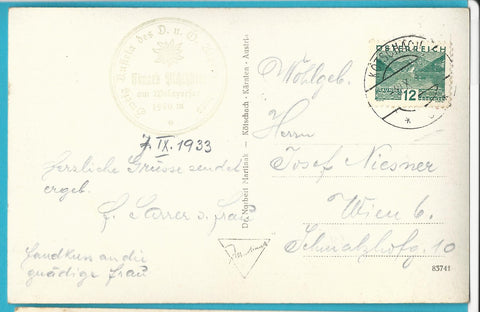 des D. u. Ö.
am Wolayersee
7. IX. 1933
Herzliche Grüsse sendet
ergeb.
Handkuss an die
gnädige Frau
Dr. Norbert Martinak - Kötschach - Kärnten - Austria
Wohlgeb.
Herrn
Josef Niesner
Wien 6.
Schmalzhofg. 10
83741
KÖTSCHACH
ÖSTERREICH
12